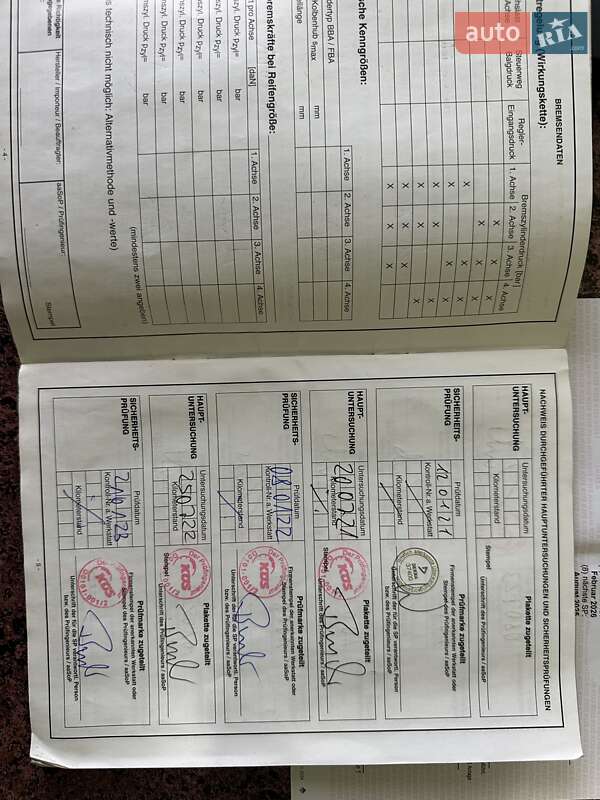 auto RIA.com
BREMSENDATEN
(Wirkungskette):
Steuerweg
Balgdruck
Regler-
Eingangsdruck
Bremszylinderdruck [bar]
1. Achse
2. Achse
3. Achse
4. Achse
sche Kenngrößen:
dertyp BBA / FBA
Kolbenhub smax mm
ellänge mm
1. Achse
2. Achse
3. Achse
4. Achse
emskräfte bei Reifengröße:
t pro Achse [daN]
1. Achse
2. Achse
3. Achse
4. Achse
mszyl. Druck pZyl= bar
nszyl. Druck pZyl= bar
szyl. Druck pZyl= bar
zyl. Druck pZyl= bar
s technisch nicht möglich: Alternativmethode und -werte)
(mindestens zwei angeben)
Hersteller / Importeur / Beauftragter:
aaSoP / Prüfingenieur:
Stempel
- 4 -
NACHWEIS DURCHGEFÜHRTER HAUPTUNTERSUCHUNGEN UND SICHERHEITSPRÜFUNGEN
HAUPT-
UNTERSUCHUNG
Untersuchungsdatum
Kilometerstand
Stempel
Plakette zugeteilt
Unterschrift des Prüfingenieurs / aaSoP
SICHERHEITS-
PRÜFUNG
Prüfdatum
120121
Kontroll-Nr. a. Werkstatt
Kilometerstand
Prüfmarke zugeteilt
Firmenstempel der anerkannten Werkstatt oder
Stempel des Prüfingenieurs / aaSoP
Unterschrift der für die SP verantwortl. Person
bzw. des Prüfingenieurs / aaSoP
HAUPT-
UNTERSUCHUNG
Untersuchungsdatum
200721
Kilometerstand
Stempel
KÜS
Plakette zugeteilt
Unterschrift des Prüfingenieurs / aaSoP
SICHERHEITS-
PRÜFUNG
Prüfdatum
080122
Kontroll-Nr. a. Werkstatt
Kilometerstand
KÜS
Prüfmarke zugeteilt
Firmenstempel der anerkannten Werkstatt oder
Stempel des Prüfingenieurs / aaSoP
Unterschrift der für die SP verantwortl. Person
bzw. des Prüfingenieurs / aaSoP
HAUPT-
UNTERSUCHUNG
Untersuchungsdatum
250722
Kilometerstand
Stempel
KÜS
Plakette zugeteilt
Unterschrift des Prüfingenieurs / aaSoP
SICHERHEITS-
PRÜFUNG
Prüfdatum
210123
Kontroll-Nr. a. Werkstatt
Kilometerstand
KÜS
Prüfmarke zugeteilt
Firmenstempel der anerkannten Werkstatt oder
Stempel des Prüfingenieurs / aaSoP
Unterschrift der für die SP verantwortl. Person
bzw. des Prüfingenieurs / aaSoP
- 5 -
Februar 2026
(8) nächste SP:
August 2025